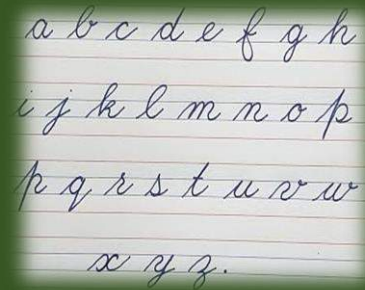 a b c d e f g h
i j k l m n o p
p q r s t u v w
x y z.